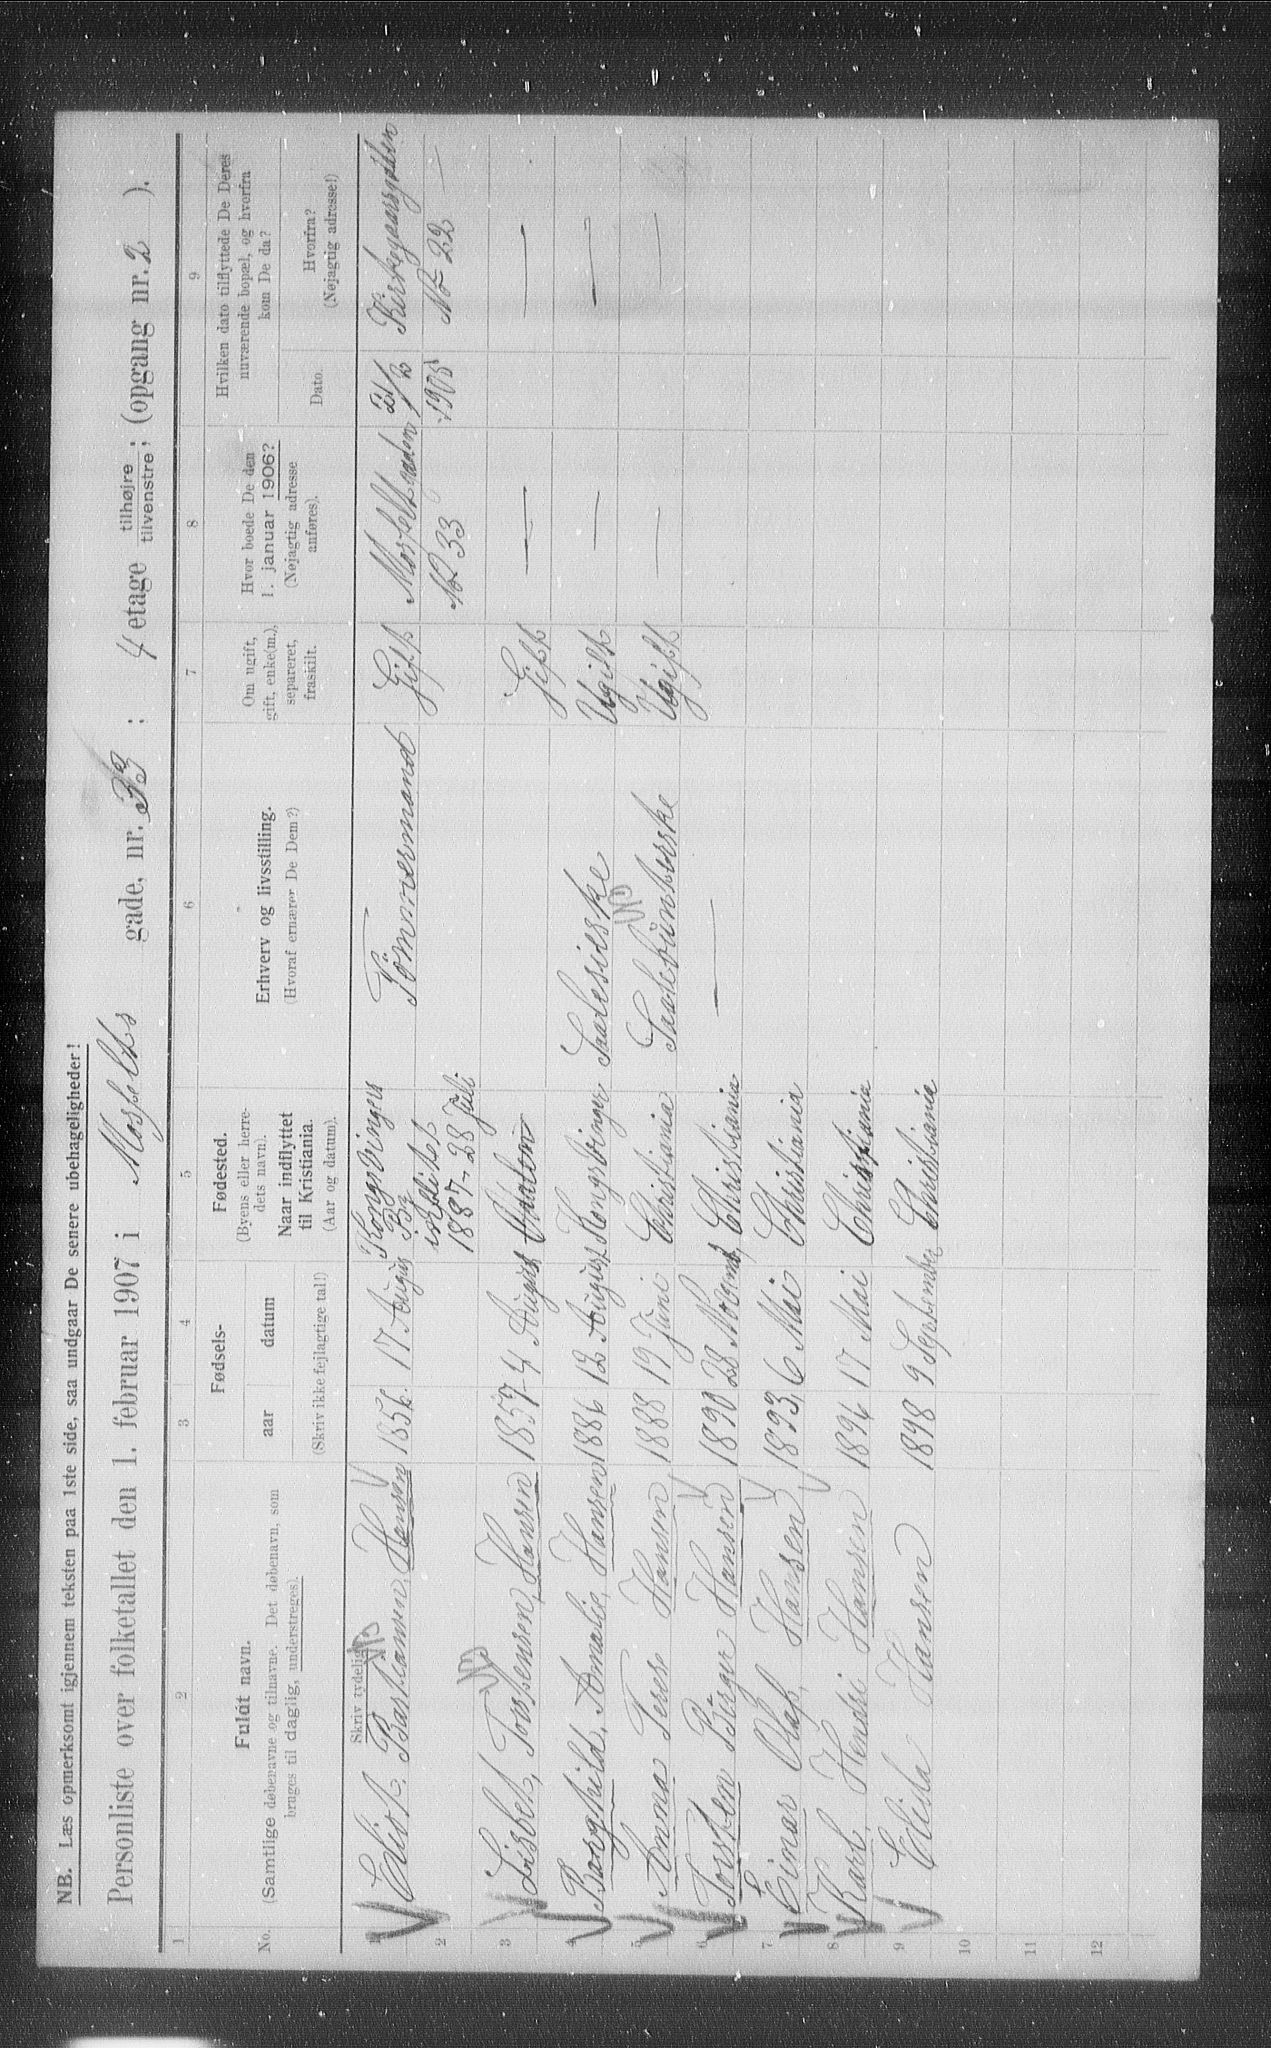 NB. Læs opmerksomt igjennem teksten paa 1ste side, saa undgaar De senere ubehageligheder!
Personliste over folketallet den 1. februar 1907 i Mosfelts gade, nr. 33 ; 4 etage tilhøjre ; tilvenstre ; (opgang nr. 2 ).
1 2 3 4 5 6 7 8 9
No.
Fuldt navn.
(Samtlige døbenavne og tilnavne. Det døbenavn, som
bruges til daglig, understreges).
Fødsels-
aar datum
(Skriv ikke fejlagtige tal!)
Fødested.
(Byens eller herre-
dets navn).
Naar indflyttet
til Kristiania.
(Aar og datum).
Erhverv og livsstilling.
(Hvoraf ernærer De Dem?)
Om ugift,
gift, enke(m.),
separeret,
fraskilt.
Hvor boede De den
1. januar 1906?
(Nøjagtig adresse
anføres).
Hvilken dato tilflyttede De Deres
nuværende bopæl, og hvorfra
kom De da?
Dato.
Hvorfra?
(Nøjagtig adresse!)
Skriv tydelig
1 Bastiansen, Hansen 1856 17 August Kongsvinger Tömmermand Gift Mosfeltsgaden 21/2 Kirkegaarsgaden
2 1887 - 28 Juli No 33 1905 No 22 —
3 Lisbet, Torstensen, Hansen 1857 4 August Gift — —
4 Barghild, Amalie, Hansen 1886 12 August Kongsvinger Ugift — —
5 Anna Terese Hansen 1888 19 Juni Christiania Ugift — —
6 Torsten Birger Hansen 1890 28 Christiania —
7 Einar Olaf, Hansen 1893 6 Mai Christiania
8 Karl, Hendri Hansen 1896 17 Mai Christiania
9 Hansen 1898 9 September Christiania
10
11
12